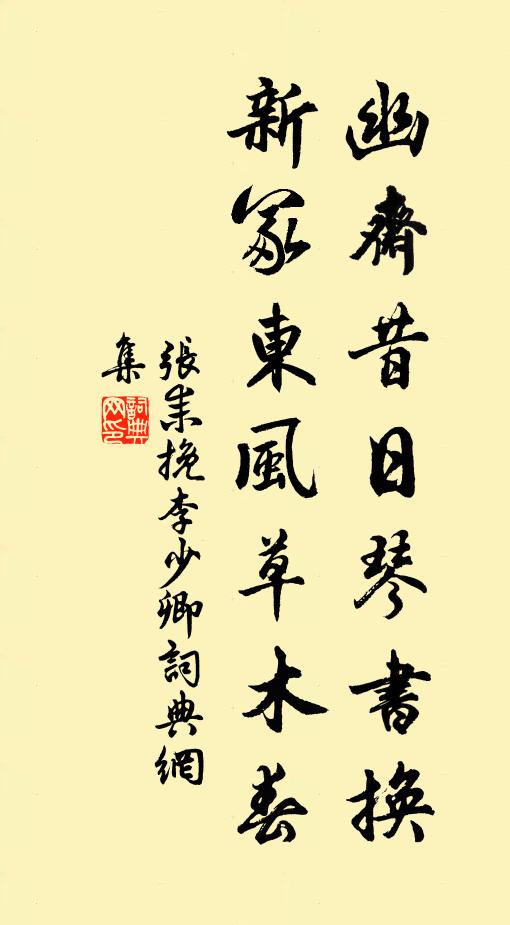 幽齋昔日琴書換
新冢東風草木春
張耒挽李少卿詞典網
集
詞典網印